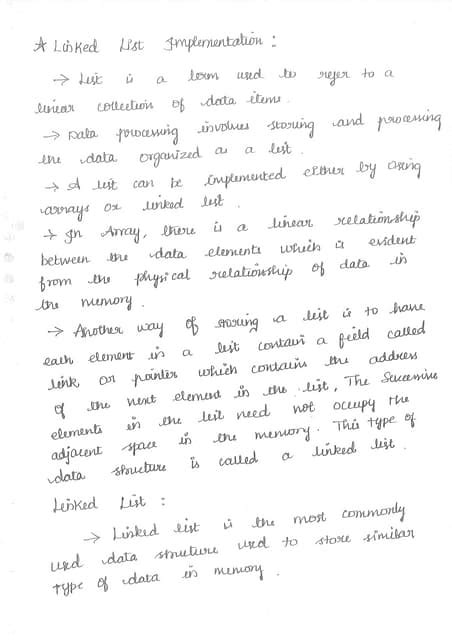 * Linked List Implementation :
→ List is a term used to refer to a
linear collection of data items.
→ Data processing involves storing and processing
the data organized as a list.
→ A list can be implemented either by using
arrays or linked list.
→ In Array, there is a linear relationship
between the data elements which is evident
from the physical relationship of data in
the memory.
→ Another way of storing a list is to have
each element in a list contain a field called
link or pointer which contains the address
of the next element in the list, The Successive
elements in the list need not occupy the
adjacent space in the memory. This type of
data structure is called a linked list.
Linked List :
→ Linked list is the most commonly
used data structure used to store similar
type of data in memory.